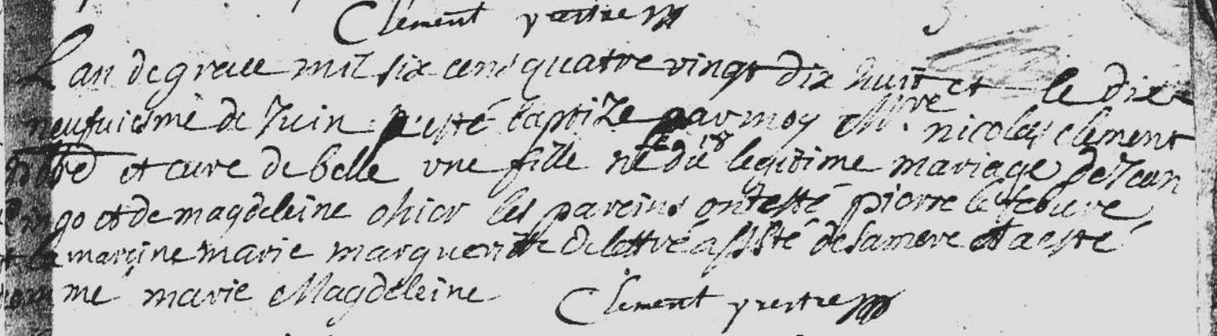 Clement prestre
Lan de grace mil six cens quatre vingt dix huit et le dix
neufuiesme de Juin p esté baptize par moy Mre nicolas clement
pbre et cure de belle une fille né le 18 du legitime mariage de Jean
go et de magdeleine ohier les pareins ont esté pierre lefebure
marine marie margueritte delattre asisté de sa mere et a esté
nommé marie Magdeleine
Clement prestre